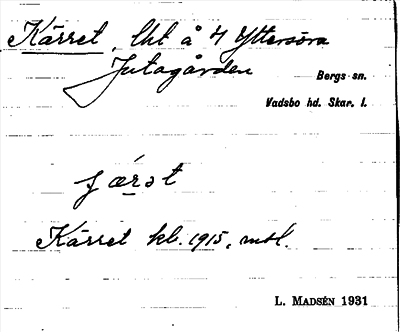 Kärret, lht å 4 Yttersöra
Jutagården
Bergs sn.
Vadsbo hd. Skar. l.
ɟæ̀rət
Kärret kb. 1915, mtl.
L. MADSÉN 1931